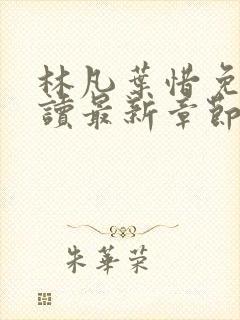 林凡葉惜免
讀最新章節
朱華榮